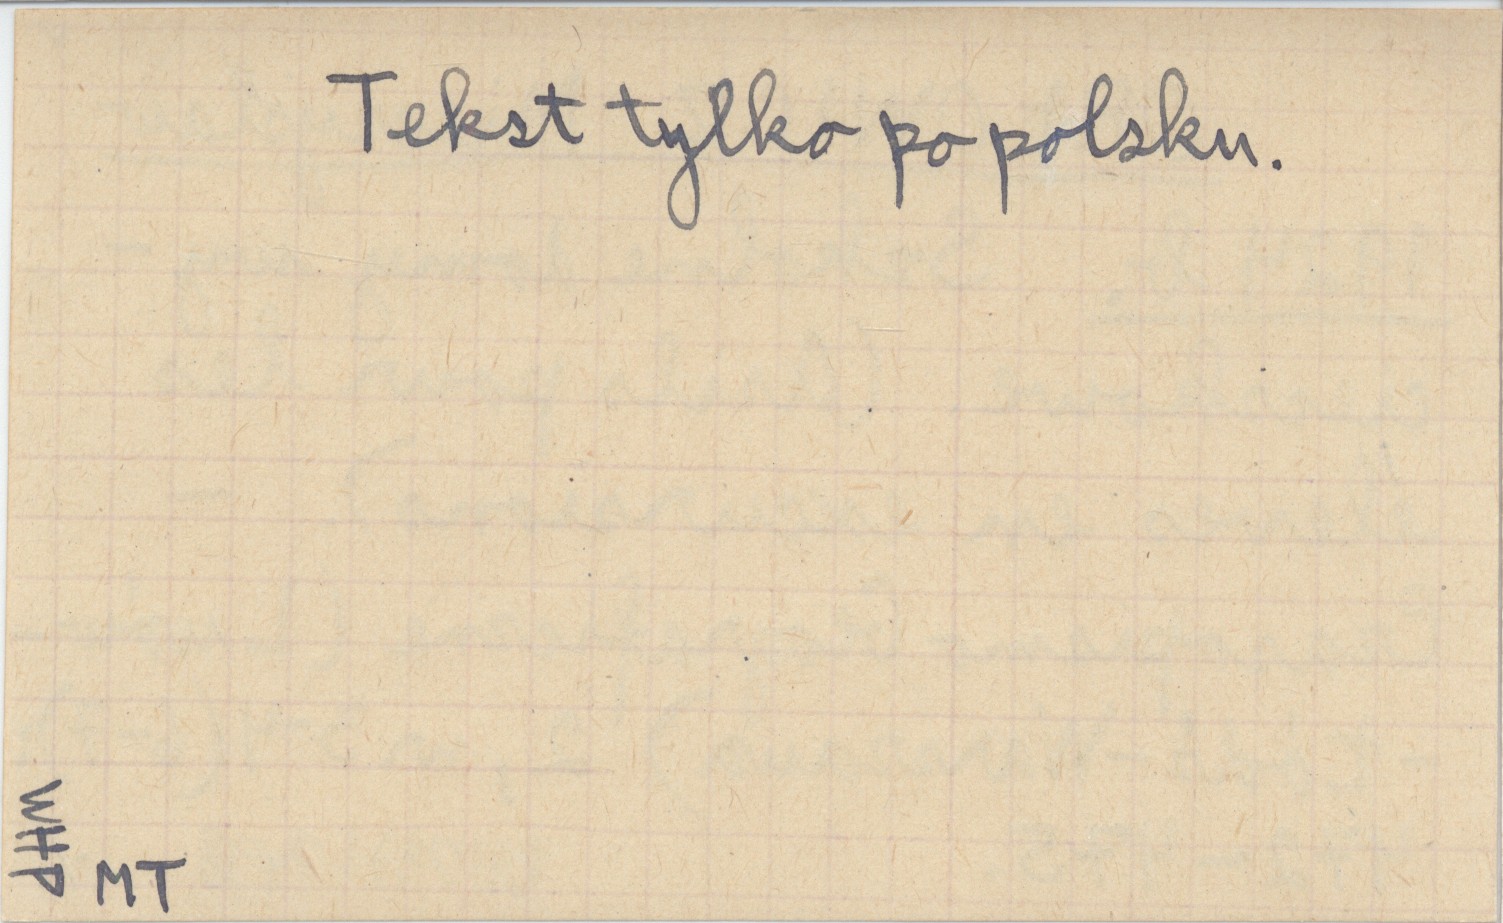 Tekst tylko po polsku.
WHP
MT